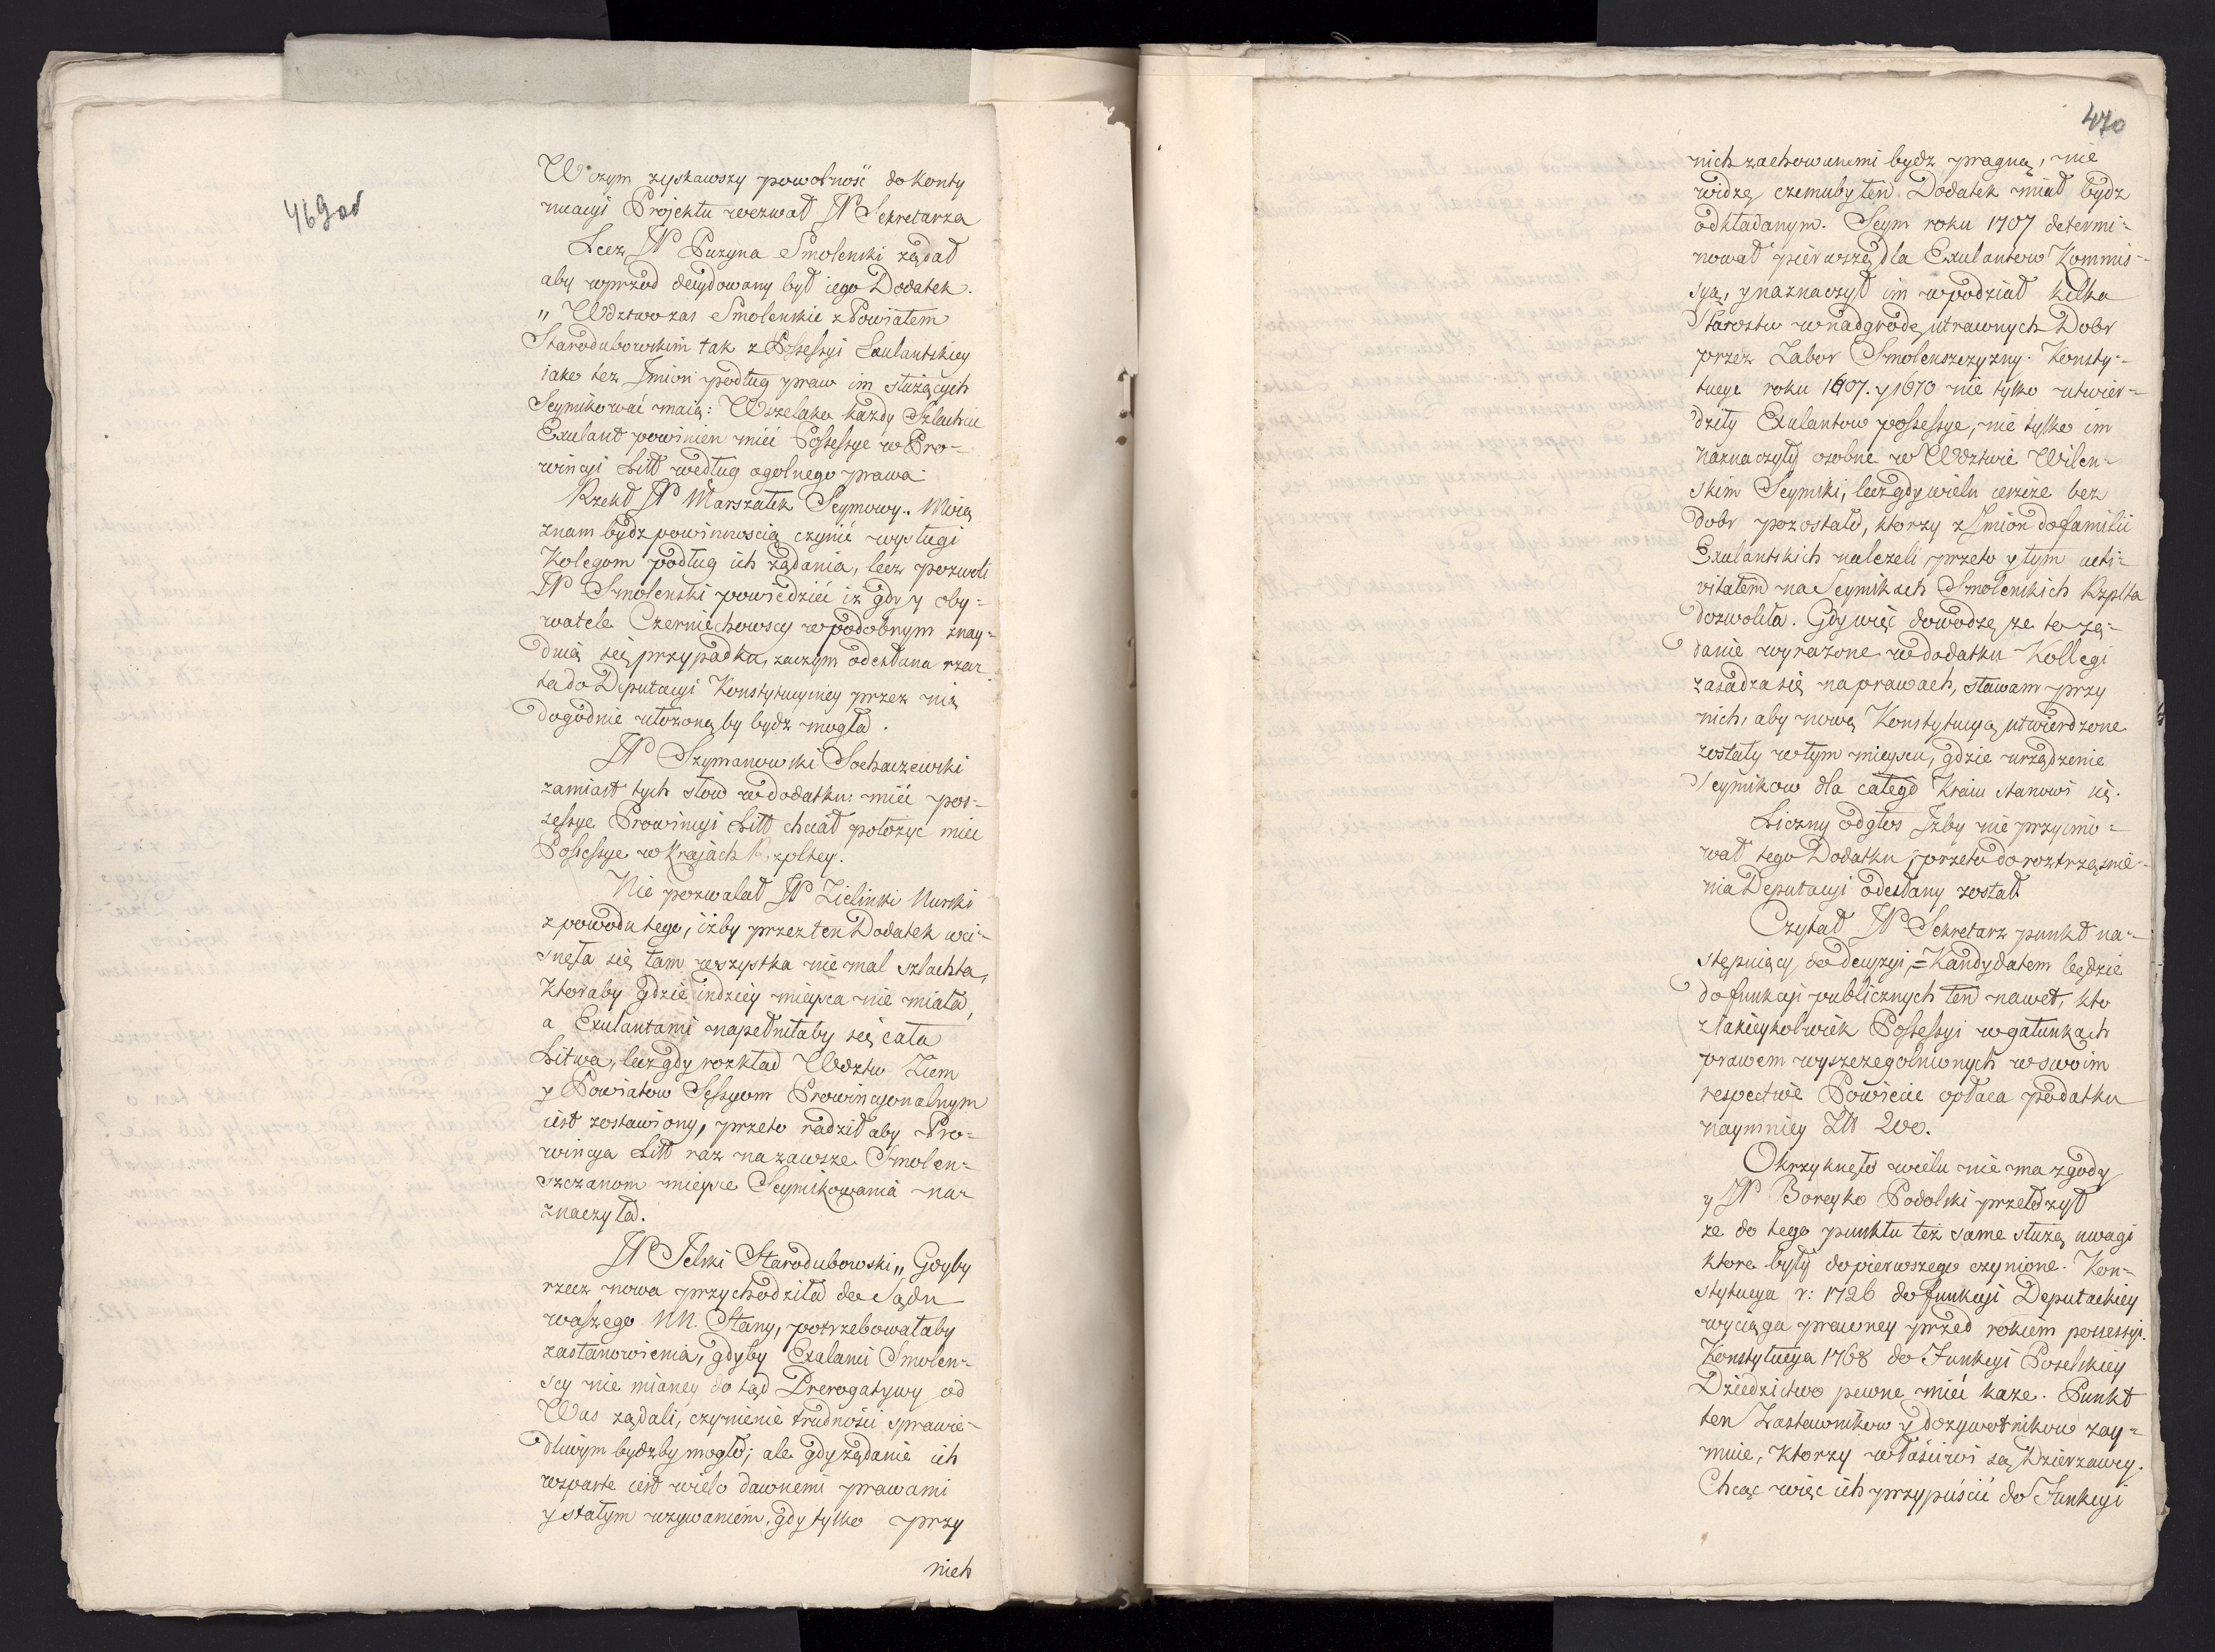 469od
W czym zyskawszy powolność do konty
nuacyi Projektu wezwał JP Sekretarza
Lecz JP Puzyna Smolenski żądał
aby wprzod decydowany był iego Dodatek.
„ Wdztwo zas Smolenskie z Powiatem
Starodubowskim tak z Possessyi Exulantskiey
iako tez Jmion podług praw im służących
Seymikować maią: Wszelako każdy Szlachcic
Exulant powinien mieć Possessye w Pro-
wincyi Litt według ogolnego prawa.
Rzekł JP Marszałek Seymowy. Moią
znam bydz powinnoscią czynić wysługi
Kolegom podług ich żądania, lecz pozwoli
JP Smolenski powiedzieć iż gdy y oby=
watele Czerniechowscy w podobnym znay=
duią się przypadku, zaczym odesłana rzecz
ta do Deputacyi Konstytucyiney przez nią
dogodnie ułożoną by bydz mogła.
JP Szymanowski Sochaczewski
zamiast tych słow w dodatku: mieć pos=
sessye Prowincyi Litt chciał położyc miec
Possessye w Krajach Rzpltey.
Nie pozwalał JP Zielinski Nurski
z powodu tego, iżby przez ten Dodatek wci=
snęła się tam wszystka nie mal szlachta,
ktoraby gdzie indziey mieysca nie miała,
a Exulantami napełniłaby się cała
Litwa, lecz gdy rozkład Wdztw Ziem
y Powiatow Sessyom Prowincyonalnym
iest zostawiony, przeto radził aby Pro=
wincya Litt raz na zawsze Smolen=
szczanom mieysce Seymikowania na=
znaczyła.
JP Jelski Starodubowski „ Gdyby
rzecz nowa przychodziła do Sądu
waszego NN. Stany, potrzebowałaby
zastanowienia, gdyby Exulanci Smolen=
scy nie mianey do tąd Prerogatywy od
Was żądali, czynienie trudności sprawie=
dliwym bydzby mogło; ale gdy żądanie ich
wsparte iest wielo dawnemi prawami
y stałym używaniem, gdy tylko przy
nich
470
nich zachowanemi bydz pragną, nie
widzę czemuby ten Dodatek miał bydz
odkładanym. Seym roku 1707 determi=
nował pierwszą dla Exulantow Kommis=
syą, y naznaczył im w podział kilka
Starostw w nadgrodę utraconych Dobr
przez Zabor Smolenszczyzny. Konsty=
tucye roku 1607. y 1670 nie tylko utwier=
dziły Exulantow possessye, nie tylko im
naznaczyły osobne w Wdztwie Wilen=
skim Seymiki, lecz gdy wielu ieszcze bez
dobr pozostało, ktorzy z Jmion do familii
Exulantskich nalezeli przeto y tym acti=
vitatem na Seymikach Smolenskich Rzplta
dozwoliła. Gdy więc dowodzę, ze to żą=
danie wyrażone w dodatku Kollegi
zasadza się na prawach, stawam przy
nich, aby nową Konstytucyą utwierdzone
zostały w tym mieyscu, gdzie urządzenie
Seymikow dla całego Kraiu stanowi się.
Liczny odgłos Jzby nie przyimo=
wał tego Dodatku, przeto do roztrząsnie=
nia Deputacyi odesłany został.
Czytał JP Sekretarz punkt na=
stępuiący do decyzyi = Kandydatem będzie
do funkcyi publicznych ten nawet, kto
z iakieykolwiek Possessyi w gatunkach
prawem wyszczegolnionych w swoim
respective Powiecie opłaca podatku
naymniey Złł 200.
Okrzyknęło wielu nie ma zgody
y JP Boreyko Podolski przełożył
ze do tego punktu też same służą uwagi
ktore były do pierwszego czynione. Kon=
stytucya r: 1726 do funkcyi Deputackiey
wyciąga prawney przed rokiem possessyi.
Konstytucya 1768 do Funkcyi Poselskiey
Dziedzictwo pewne mieć kaze. Punkt
ten Zastawnikow y dożywotnikow zay=
muie, ktorzy właściwi są Dzierzawcy.
Chcąc więc ich przypuścić do Funkcyi